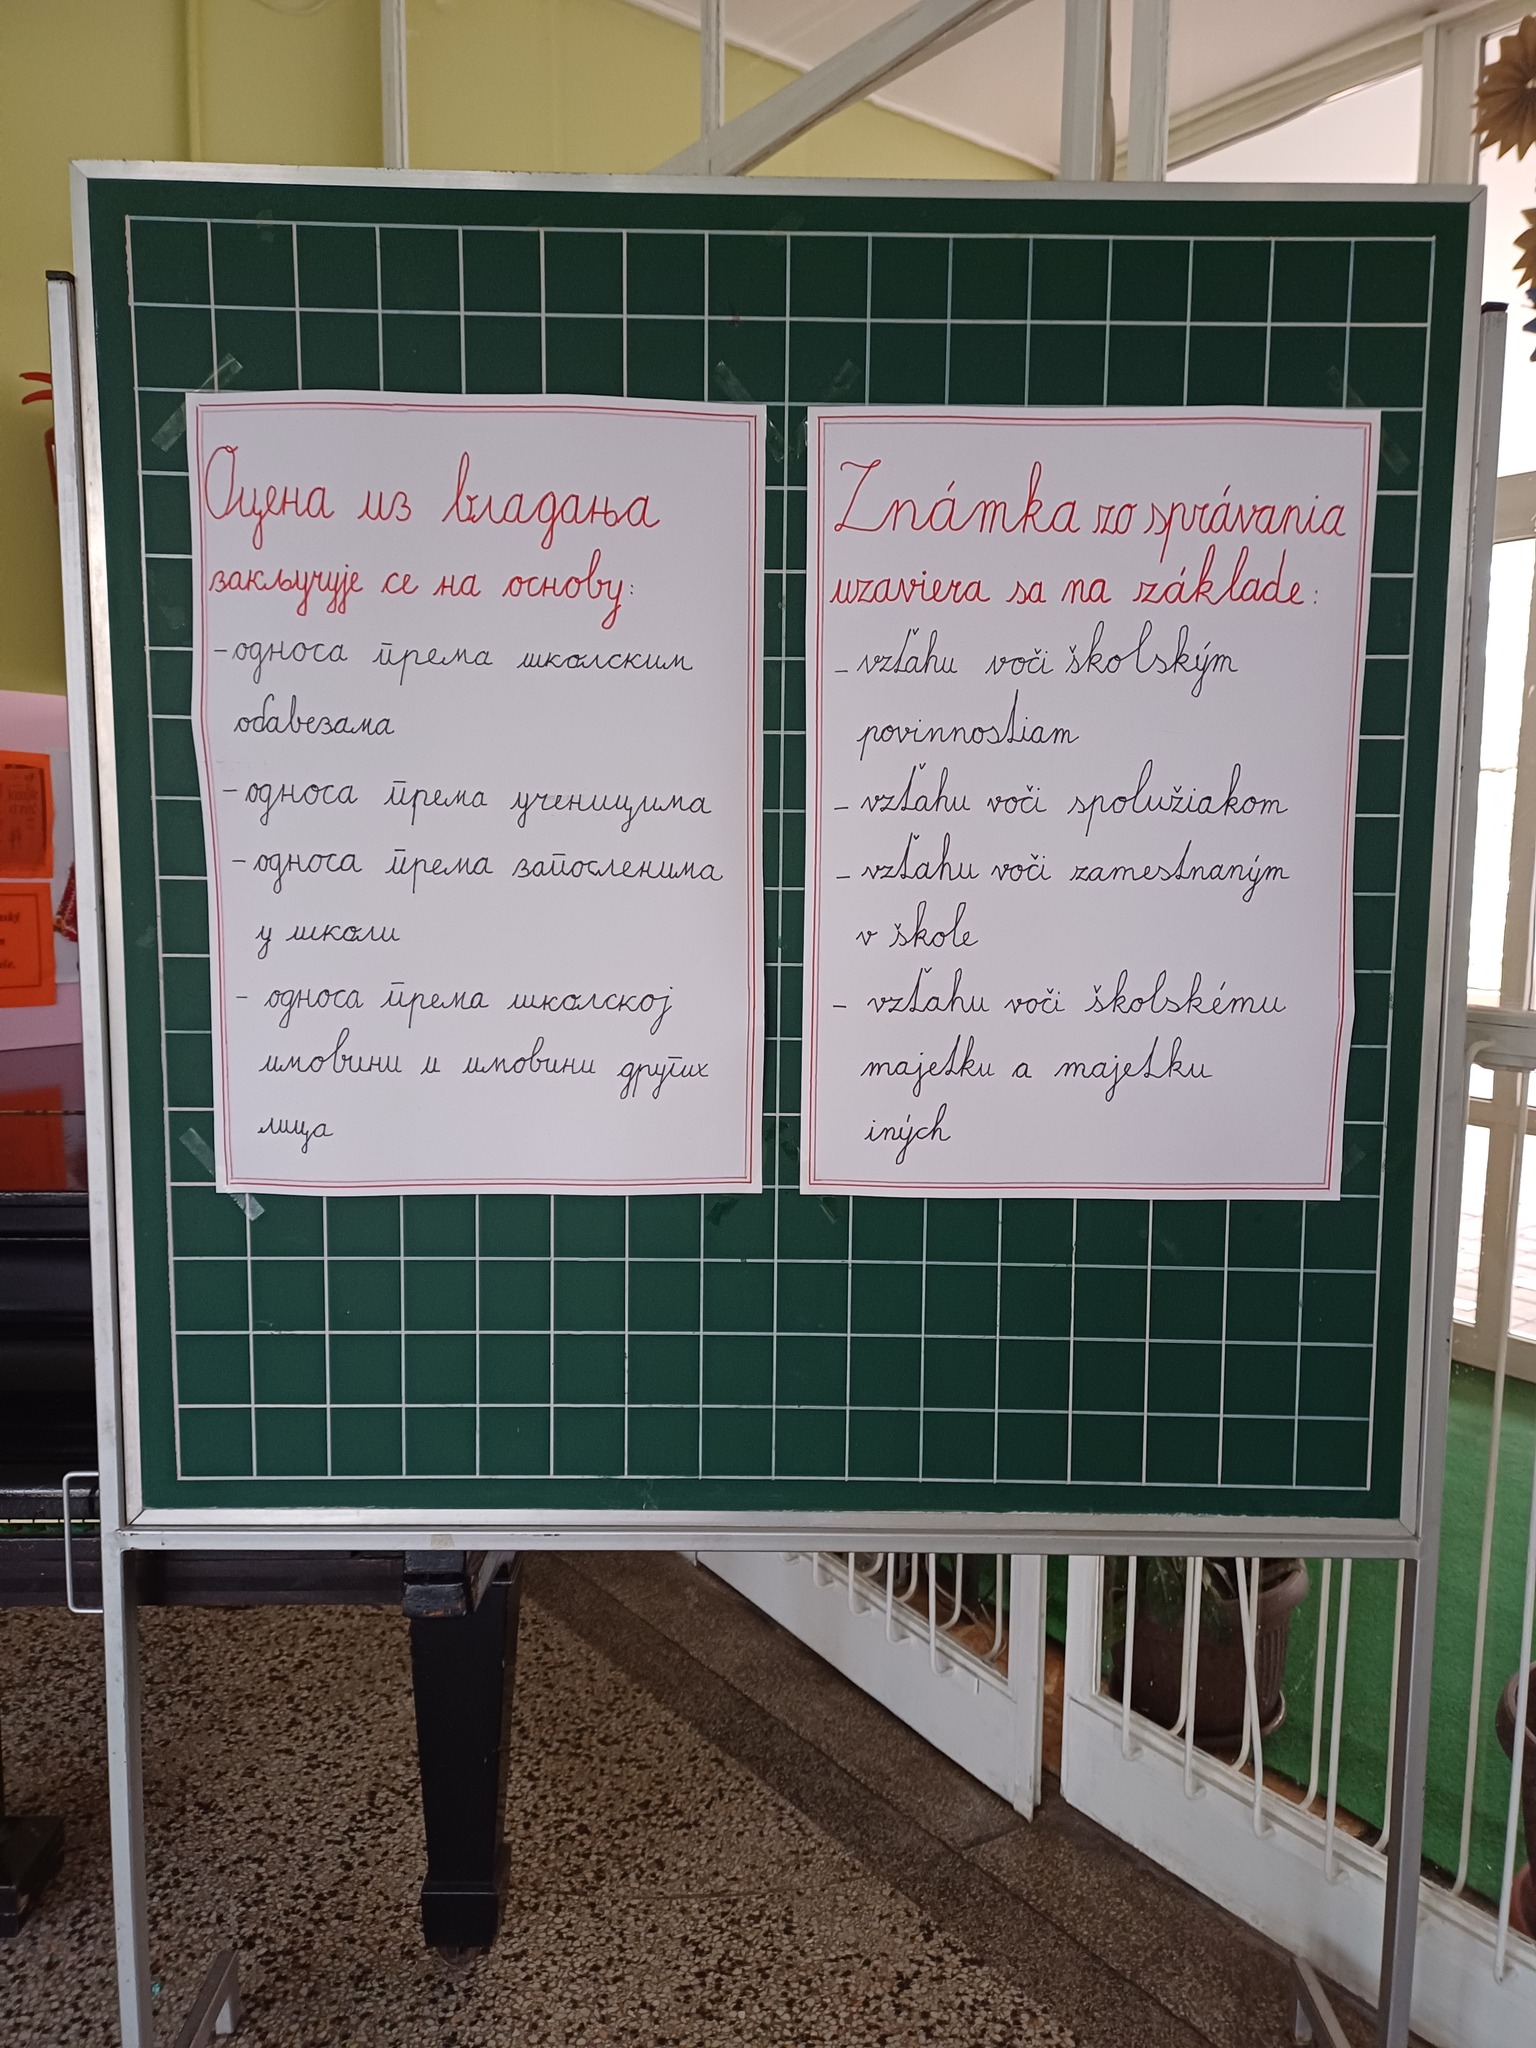 Оцена из владања
закључује се на основу:
-односа према школским
обавезама
-односа према ученицима
-односа према запосленима
у школи
- односа према школској
имовини и имовини других
лица
Známka zo správania
uzaviera sa na základe:
- vzťahu voči školským
povinnostiam
- vzťahu voči spolužiakom
- vzťahu voči zamestnaným
v škole
- vzťahu voči školskému
majetku a majetku
iných